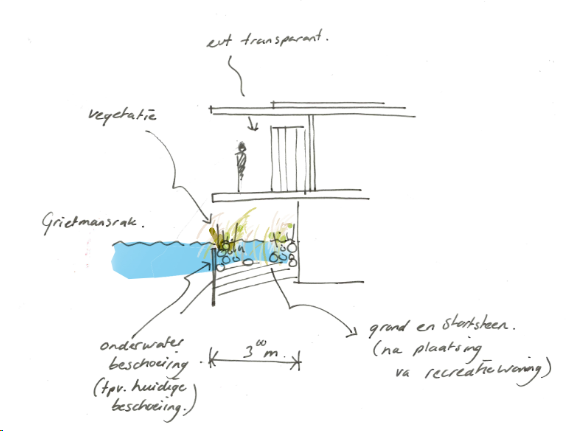 evt transparant.
vegetatie
Grietmansrak.
onderwater
beschoeiing.
(tpv. huidige
beschoeiing.)
3⁰⁰ m.
grond en stortsteen.
(na plaatsing
va recreatiewoning)